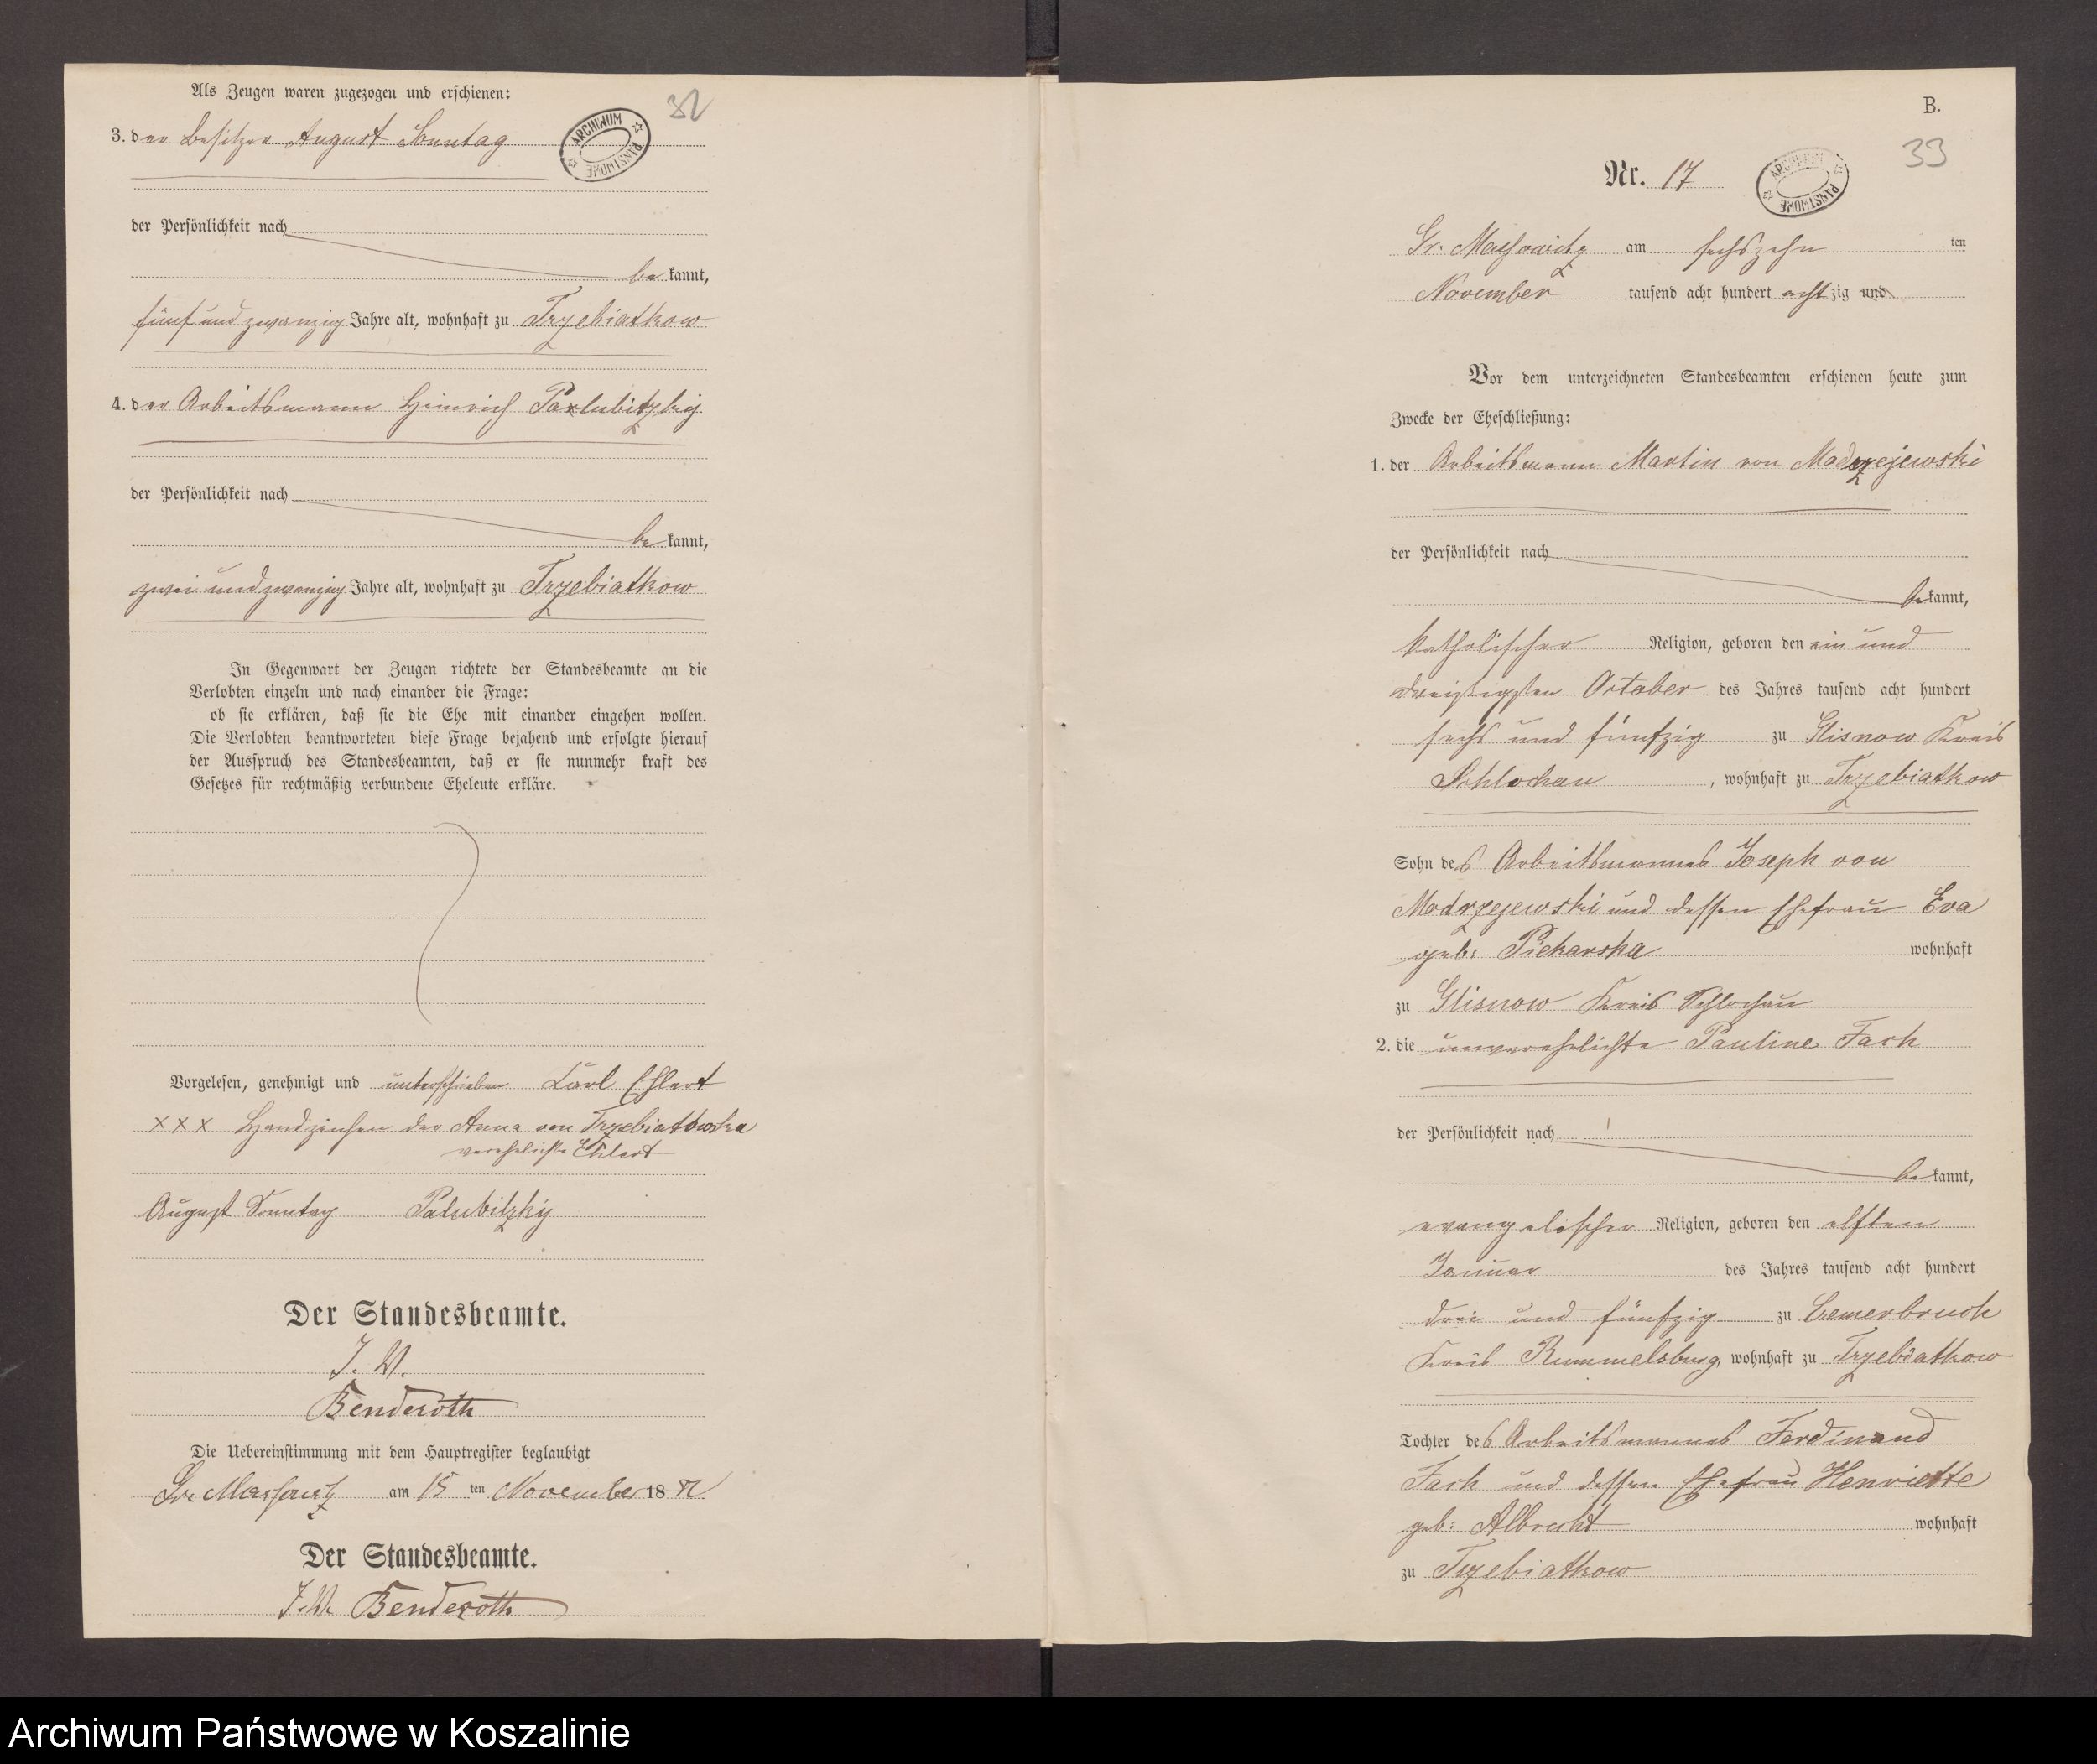 Als Zeugen waren zugezogen und erschienen:
32
3. der Besitzer August Sonntag
ARCHIWUM PAŃSTWOWE
der Persönlichkeit nach
be kannt,
fünf und zwanzig Jahre alt, wohnhaft zu Trzebiatkow
4. der Arbeitsmann Heinrich Palubitzky
der Persönlichkeit nach
be kannt,
zwei und zwanzig Jahre alt, wohnhaft zu Trzebiatkow
In Gegenwart der Zeugen richtete der Standesbeamte an die
Verlobten einzeln und nach einander die Frage:
ob sie erklären, daß sie die Ehe mit einander eingehen wollen.
Die Verlobten beantworteten diese Frage bejahend und erfolgte hierauf
der Ausspruch des Standesbeamten, daß er sie nunmehr kraft des
Gesetzes für rechtmäßig verbundene Eheleute erkläre.
Vorgelesen, genehmigt und unterschrieben Carl Ehlert
××× Handzeichen der Anna von Trzebiatowska
verehelichte Ehlert
August Sonntag Palubitzky
Der Standesbeamte.
J. V.
Benderoth
Die Uebereinstimmung mit dem Hauptregister beglaubigt
Gr. Massowitz am 15 ten November 18
Der Standesbeamte.
J. V. Benderoth
B.
33
Nr. 17
ARCHIWUM PAŃSTWOWE
Gr. Massowitz am sechszehn ten
November tausend acht hundert achtzig und
Vor dem unterzeichneten Standesbeamten erschienen heute zum
Zwecke der Eheschließung:
1. der Arbeitsmann Martin von Modrzejewski
der Persönlichkeit nach
be kannt,
katholischer Religion, geboren den ein und
dreißigsten October des Jahres tausend acht hundert
sechs und fünfzig zu Glisnow Kreis
Schlochau, wohnhaft zu Trzebiatkow
Sohn des Arbeitsmannes Joseph von
Modrzejewski und dessen Ehefrau Eva
geb: Piekarska wohnhaft
zu Glisnow Kreis Schlochau
2. die unverehelichte Pauline Fach
der Persönlichkeit nach
be kannt,
evangelischer Religion, geboren den elften
Januar des Jahres tausend acht hundert
drei und fünfzig zu Cremerbruch
Kreis Rummelsburg, wohnhaft zu Trzebiatkow
Tochter des Arbeitsmannes Ferdinand
Fach und dessen Ehefrau Henriette
geb: Albrecht wohnhaft
zu Trzebiatkow
Archiwum Państwowe w Koszalinie